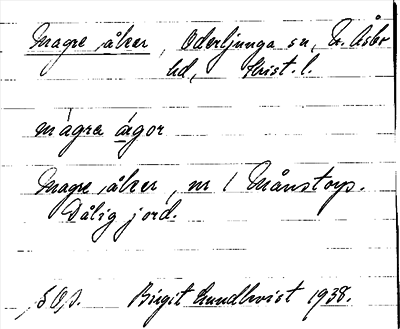 Magre åker, Oderljunga sn, N. Åsbo
hd, Krist. l.
mågra ågor
Magre åker, nr 1 Månstorp.
Dålig jord.
Birgit Lundkvist 1938.